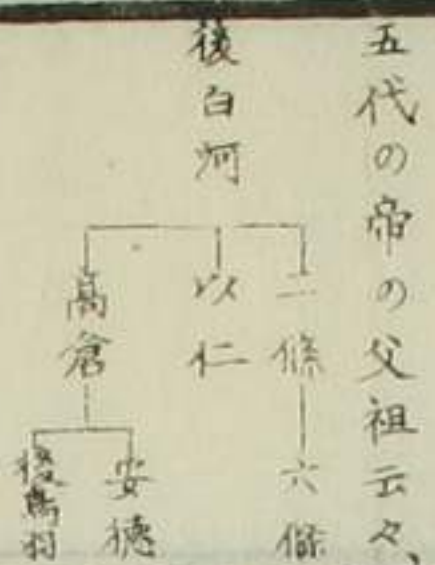 五代の帝の父祖云々、
後白河
二條
六條
以仁
高倉
安徳
後鳥羽